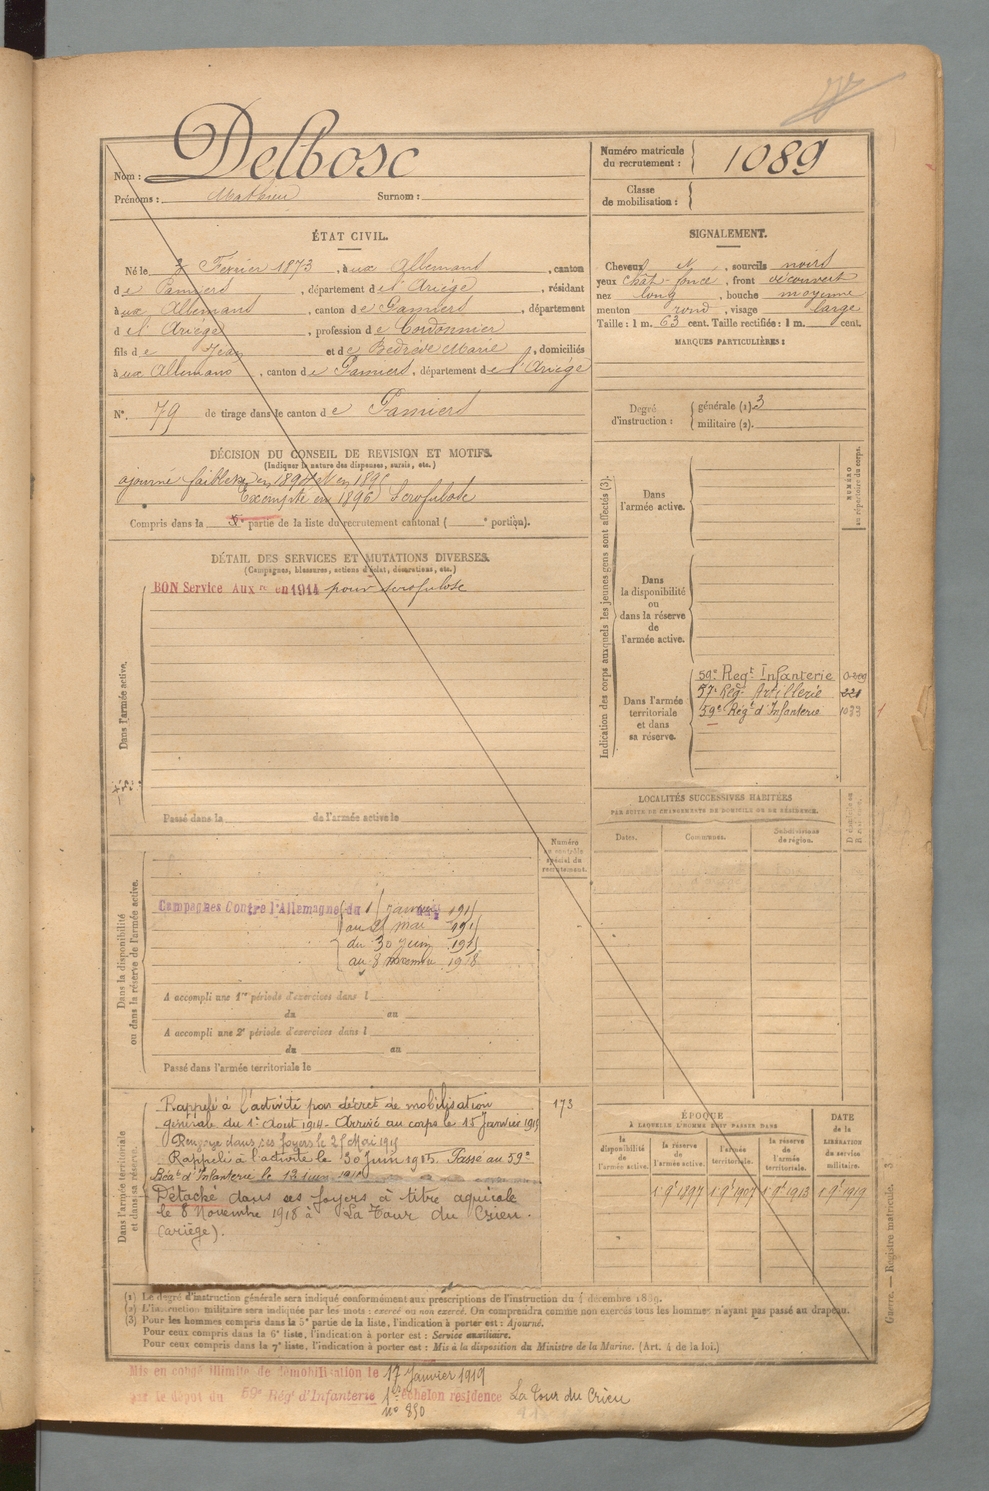 Nom : Delbosc
Prénoms : Mathieu Surnom :
Numéro matricule du recrutement : 1089
Classe de mobilisation :
ÉTAT CIVIL.
Né le 3 Février 1873, à ux Allemans, canton
de Pamiers, département de l'Ariège, résidant
à ux Allemans, canton de Pamiers, département
de l'Ariège, profession de Cordonnier
fils de Jean et de Bedrède Marie, domiciliés
à ux Allemans, canton de Pamiers, département de l'Ariège
N° 79 de tirage dans le canton de Pamiers
SIGNALEMENT.
Cheveux N, sourcils noirs
yeux chât-foncé, front découvert
nez long, bouche moyenne
menton rond, visage large
Taille : 1 m. 63 cent. Taille rectifiée : 1 m. cent.
MARQUES PARTICULIÈRES :
Degré d'instruction : générale (1). 3
militaire (2).
DÉCISION DU CONSEIL DE REVISION ET MOTIFS.
(Indiquer la nature des dispenses, sursis, etc.)
ajourné faiblesse en 1894 et en 1895
Exempté en 1896 Scrofulose
Compris dans la partie de la liste du recrutement cantonal ( portion).
DÉTAIL DES SERVICES ET MUTATIONS DIVERSES.
(Campagnes, blessures, actions d'éclat, décorations, etc.)
Dans l'armée active.
BON Service Aux re en 1914 pour scrofulose
Passé dans la de l'armée active le
Indication des corps auxquels les jeunes gens sont affectés (3).
NUMÉRO au répertoire du corps.
Dans l'armée active.
Dans la disponibilité ou dans la réserve de l'armée active.
Dans l'armée territoriale et dans sa réserve.
59e Regt Infanterie
57e Rég. Artillerie 221
59e Régt d'Infanterie 1033
LOCALITÉS SUCCESSIVES HABITÉES
PAR SUITE DE CHANGEMENTS DE DOMICILE OU DE RÉSIDENCE.
Dates. Communes. Subdivisions de région.
Dans la disponibilité ou dans la réserve de l'armée active.
Numéro au contrôle spécial du recrutement.
Campagnes Contre l'Allemagne du 1 janvier 1915
au 25 mai 1915
du 30 juin 1915
au 8 novembre 1918
A accompli une 1re période d'exercices dans l
du au
A accompli une 2e période d'exercices dans l
du au
Passé dans l'armée territoriale le
Dans l'armée territoriale et dans sa réserve.
Rappelé à l'activité par décret de mobilisation 173
générale du 1er Aout 1914 - Arrivé au corps le 15 Janvier 1915
Renvoyé dans ses foyers le 25 Mai 1915
Rappelé à l'activité le 30 Juin 1915. Passé au 59e
Régt d'Infanterie le 13 juin
Détaché dans ses foyers à titre agricole
le 8 Novembre 1918 à La Tour du Crieu
(ariège).
ÉPOQUE
À LAQUELLE L'HOMME DOIT PASSER DANS
la disponibilité de l'armée active. la réserve de l'armée active. l'armée territoriale. la réserve de l'armée territoriale.
DATE de la LIBÉRATION du service militaire.
1er 9e 1897 1er 9e 1907 1er 9e 1913 1er 9e 1919
(1) Le degré d'instruction générale sera indiqué conformément aux prescriptions de l'instruction du 4 décembre 1889.
(2) L'instruction militaire sera indiquée par les mots : exercé ou non exercé. On comprendra comme non exercés tous les hommes n'ayant pas passé au drapeau.
(3) Pour les hommes compris dans la 5e partie de la liste, l'indication à porter est : Ajourné.
Pour ceux compris dans la 6e liste, l'indication à porter est : Service auxiliaire.
Pour ceux compris dans la 7e liste, l'indication à porter est : Mis à la disposition du Ministre de la Marine. (Art. 4 de la loi.)
Guerre. — Registre matricule. 3
Mis en congé illimité de démobilisation le 17 Janvier 1919
par le dépôt du 59e Rég' d'Infanterie 1er échelon résidence La Tour du Crieu
N° 850